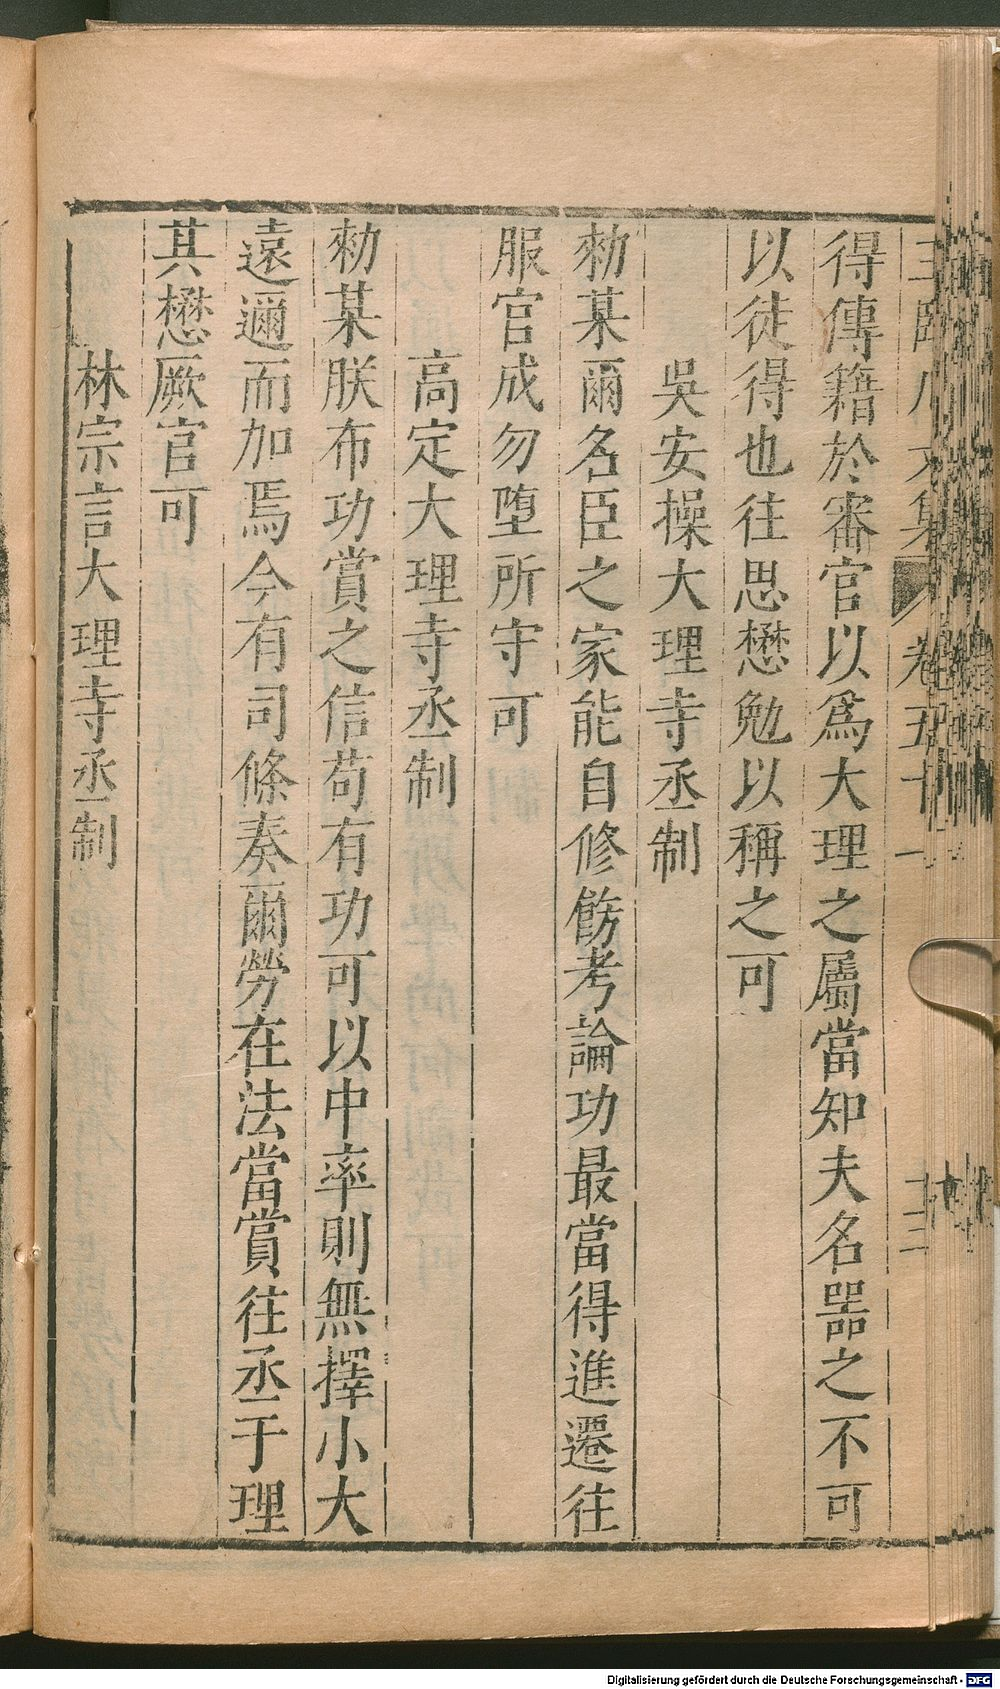 得傳籍於審官以爲大理之屬當知夫名器之不可
以徒得也往思懋勉以稱之可
吳安操大理寺丞制
勑某爾名臣之家能自修飭考論功最當得進遷往
服官成勿墮所守可
高定大理寺丞制
勑某朕布功賞之信苟有功可以中率則無擇小大
遠邇而加焉今有司條奏爾勞在法當賞往丞于理
其懋厥官可
林宗言大理寺丞制
Digitalisierung gefördert durch die Deutsche Forschungsgemeinschaft - DFG